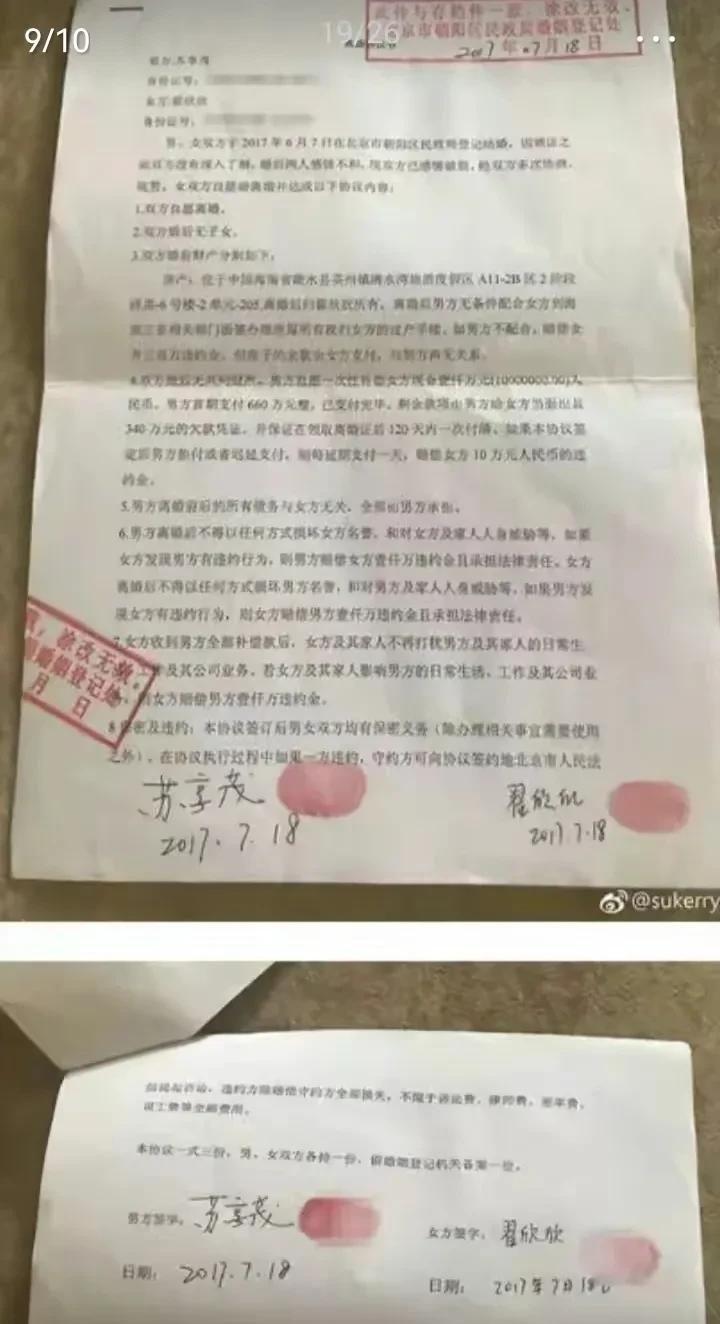 9/10
19/26
此件与存档件一致,涂改无效。
北京市朝阳区民政局婚姻登记处
2017年07月18日
离婚协议书
男方:苏享茂
身份证号:
女方:翟欣欣
身份证号:
男、女双方于2017年6月7日在北京市朝阳区民政局登记结婚,因婚证之
前双方没有深入了解,婚后两人感情不和,现双方已感情破裂,经双方多次协商,
现男、女双方自愿离婚并达成以下协议内容:
1.双方自愿离婚。
2.双方婚后无子女。
3.双方婚前财产分割如下:
房产:位于中国海南省陵水县英州镇清水湾旅游度假区A11-2B区2阶段
-6号楼-2单元-205,离婚后归翟欣欣所有,离婚后男方无条件配合女方到海
南三亚相关部门面签办理房屋所有权归女方的过户手续,如男方不配合,赔偿女
方三百万违约金。但房子的余款由女方支付,与男方再无关系。
4.双方婚后无共同财产。男方自愿一次性补偿女方现金壹仟万元(10000000.00)人
民币。男方首期支付660万元整,已支付完毕。剩余款项由男方给女方当面出具
340万元的欠款凭证,并保证在领取离婚证后120天内一次付清。如果本协议签
定后男方拒付或者迟延支付,则每延期支付一天,赔偿女方10万元人民币的违
约金。
5.男方离婚前后的所有债务与女方无关,全部由男方承担。
6.男方离婚后不得以任何方式损坏女方名誉,和对女方及家人人身威胁等,如果
女方发现男方有违约行为,则男方赔偿女方壹仟万违约金且承担法律责任。女方
离婚后不得以任何方式损坏男方名誉,和对男方及家人人身威胁等,如果男方发
现女方有违约行为,则女方赔偿男方壹仟万违约金且承担法律责任。
7.女方收到男方全部补偿款后,女方及其家人不再打扰男方及其家人的日常生
工作及其公司业务。若女方及其家人影响男方的日常生活、工作及其公司业
则女方赔偿男方壹仟万违约金。
8.保密及违约:本协议签订后男女双方均有保密义务(除办理相关事宜需要使用
之外)。在协议执行过程中如果一方违约,守约方可向协议签约地北京市人民法
致,涂改无效。
婚姻登记处
月 日
苏享茂
2017.7.18
翟欣欣
2017.7.18
@sukerry
院提起诉讼,违约方除赔偿守约方全部损失,不限于诉讼费、律师费、差旅费、
误工费等全部费用。
本协议一式三份,男、女双方各持一份,留婚姻登记机关备案一份。
男方签字:苏享茂
女方签字:翟欣欣
日期:2017.7.18
日期:2017年7月18日